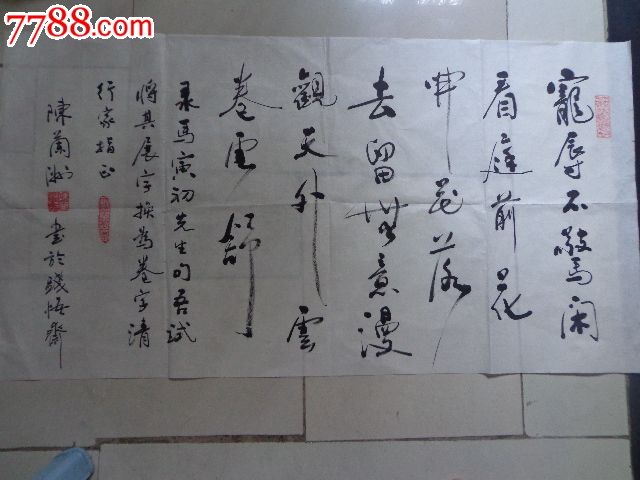 7788.com
寵辱不驚閑
看庭前花
開花落
去留無意漫
觀天外雲
卷雲舒
录馬寅初先生句吾試
將其展字換為卷字清
行家指正
陳蘭 書於踐悟齋